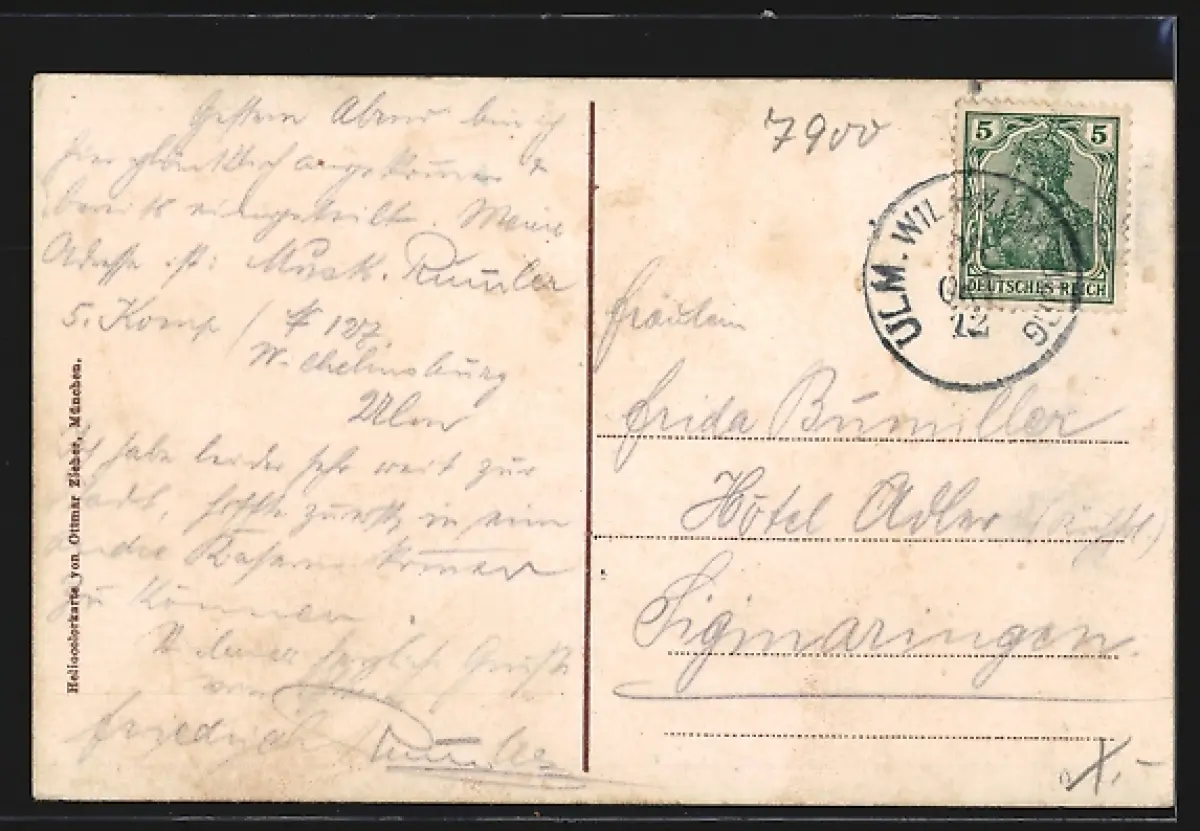 Gestern Abend bin ich
hier glücklich angekommen &
bereits eingeteilt. Meine
Adresse ist: Musk.
5. Komp / 127.
Wilhelmsburg
Ulm
Ich habe leider sehr weit zur
Stadt, hoffe zuerst in eine
andre Kaserne kommen
zu können.
herzlichste Grüße
von
Friedrich
Heliocolorkarte von Ottmar Zieher, München.
7900
5 5
DEUTSCHES REICH
ULM. WIL
12
Fräulein
Frida Bumiller
Hôtel Adler
Sigmaringen.